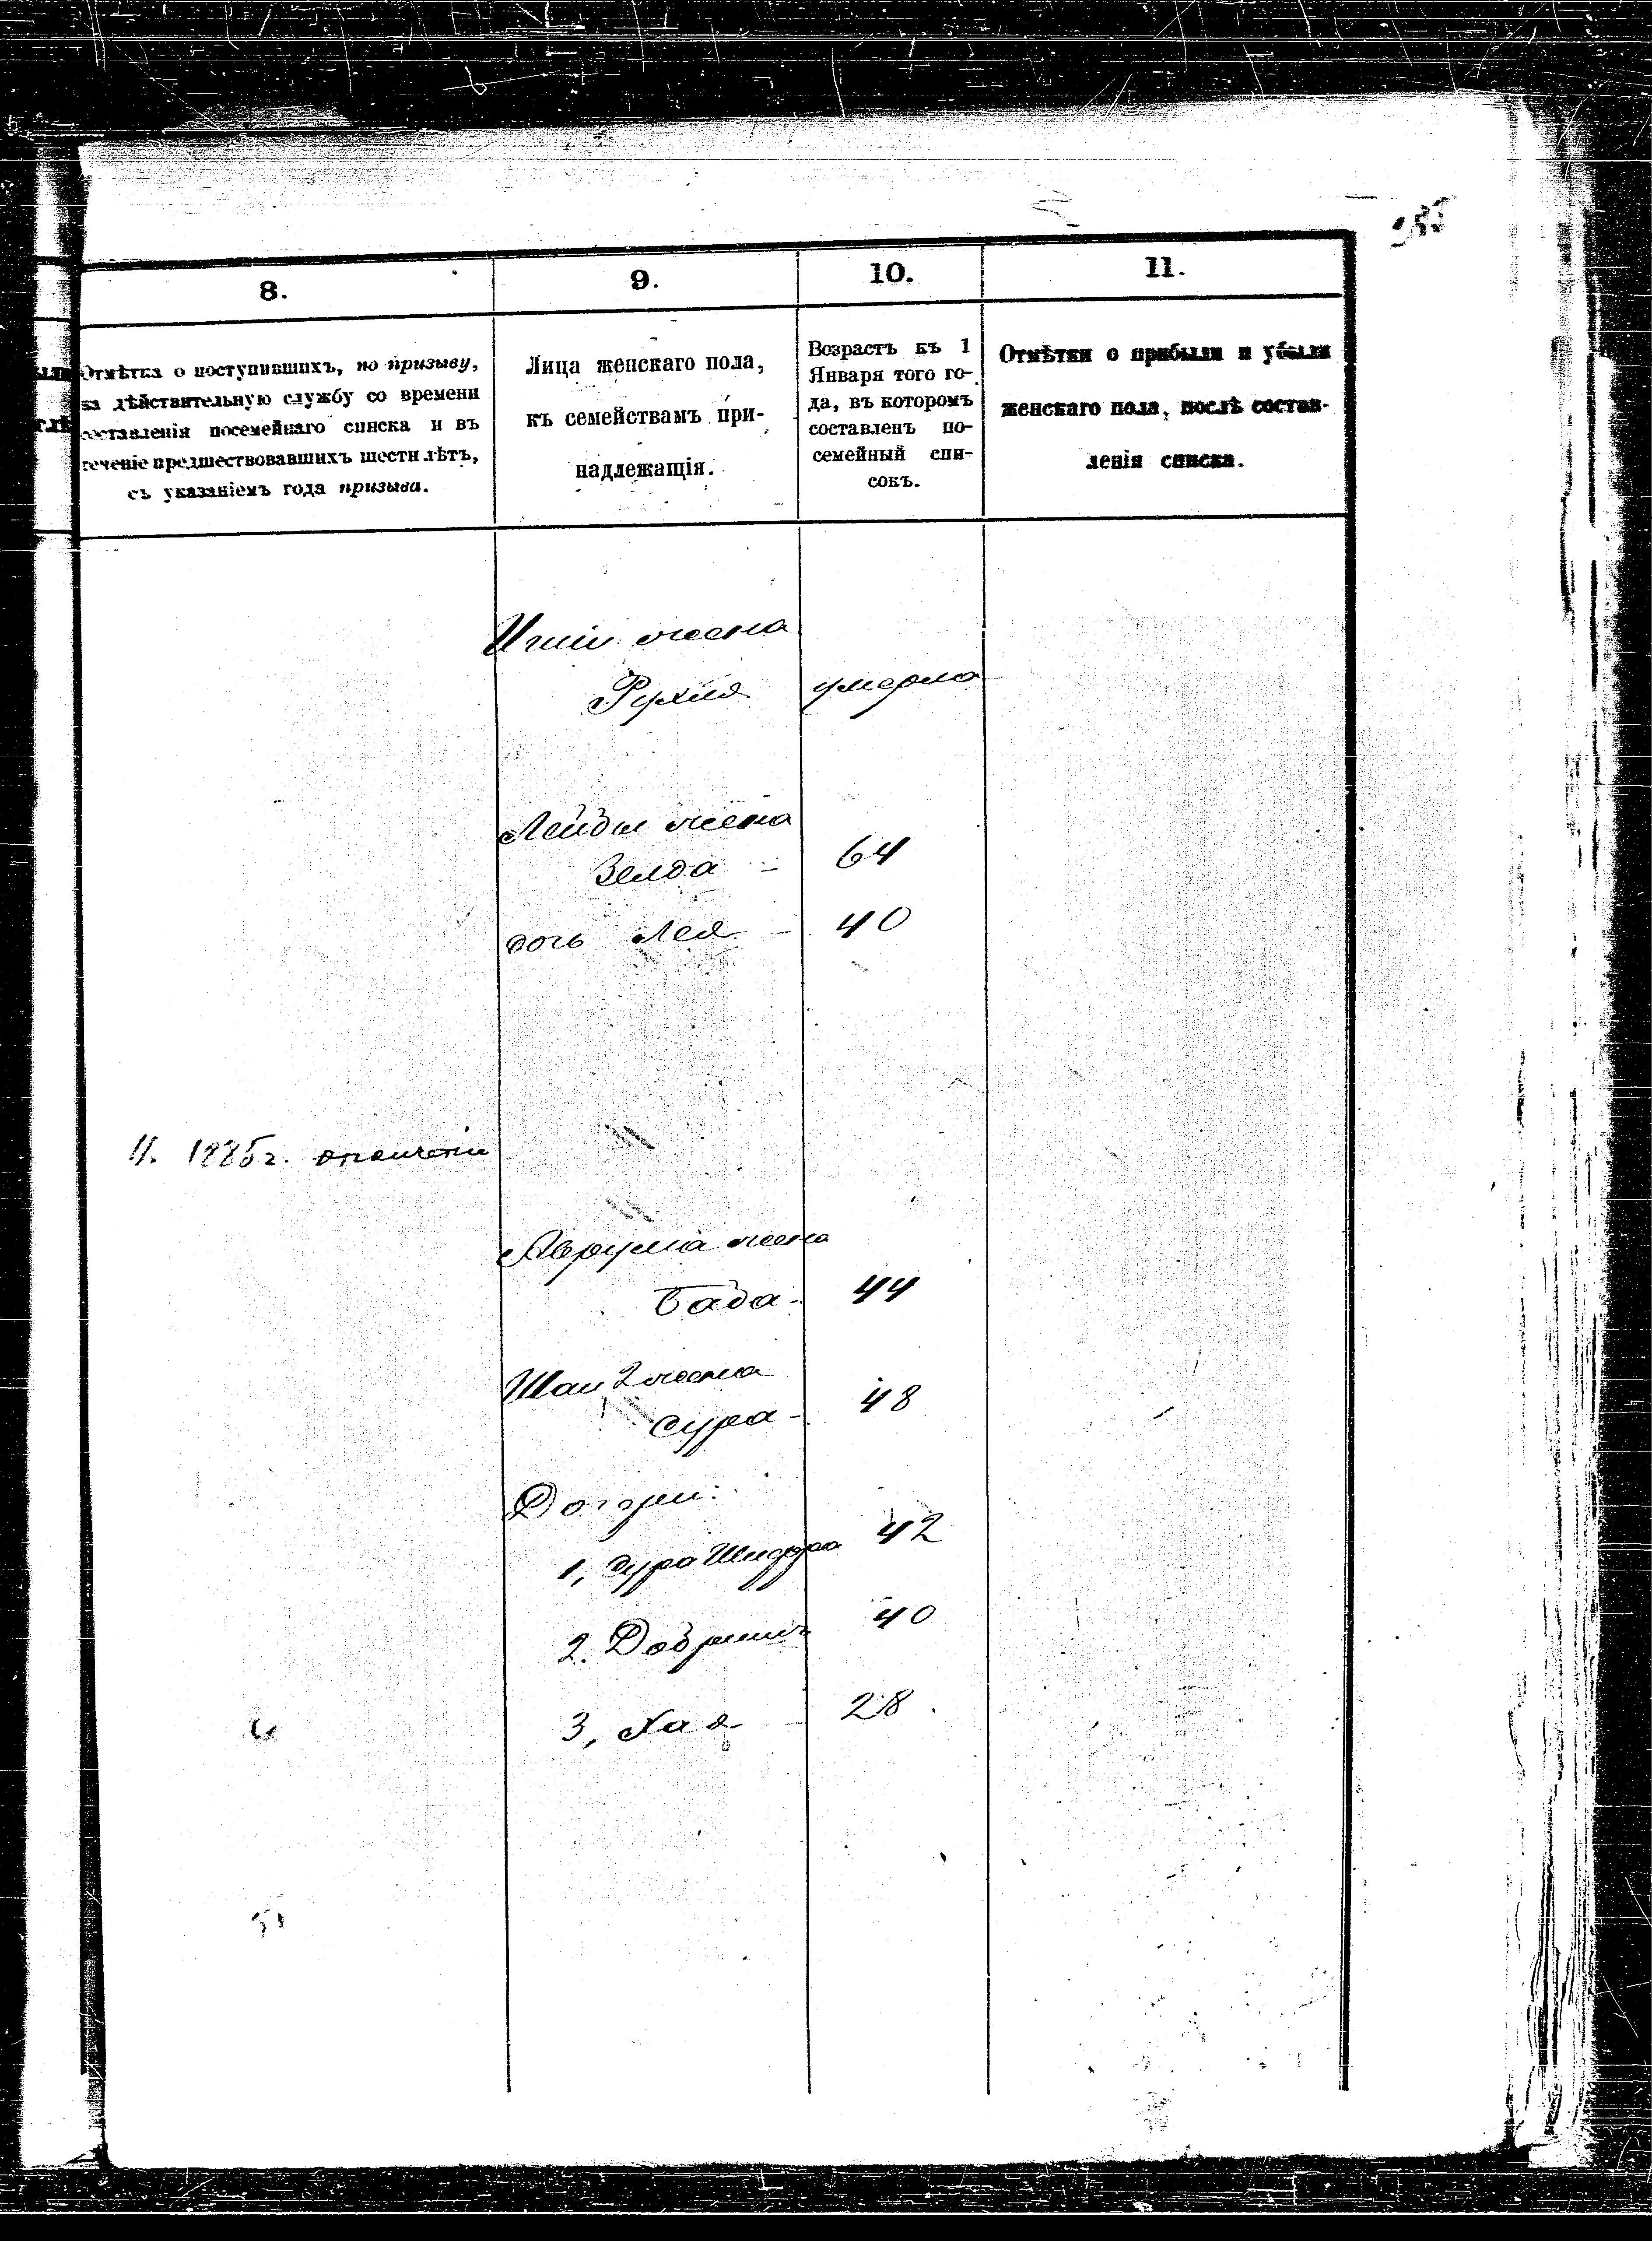 8.
9.
10.
11.
Отмѣтка о поступившихъ, по призыву,
на дѣйствительную службу со времени
составленія посемейнаго списка и въ
теченіе предшествовавшихъ шести лѣтъ,
съ указаніемъ года призыва.
Лица женскаго пола,
къ семействамъ при-
надлежащія.
Возрастъ къ 1
Января того го-
да, въ которомъ
составленъ по-
семейный спи-
сокъ.
Отмѣтки о прибыли и убыли
женскаго пола, послѣ состав-
ленія списка.
жена
Рухля умерла
Лейбы жена
Зелда - 64
дочь Лея - 40
1885 г. ополченіе
Аврума жена
Бада - 44
2 жена
Сура - 48
Дочери:
1, Сура Шифра 42
2. 40
3, Хая - 28